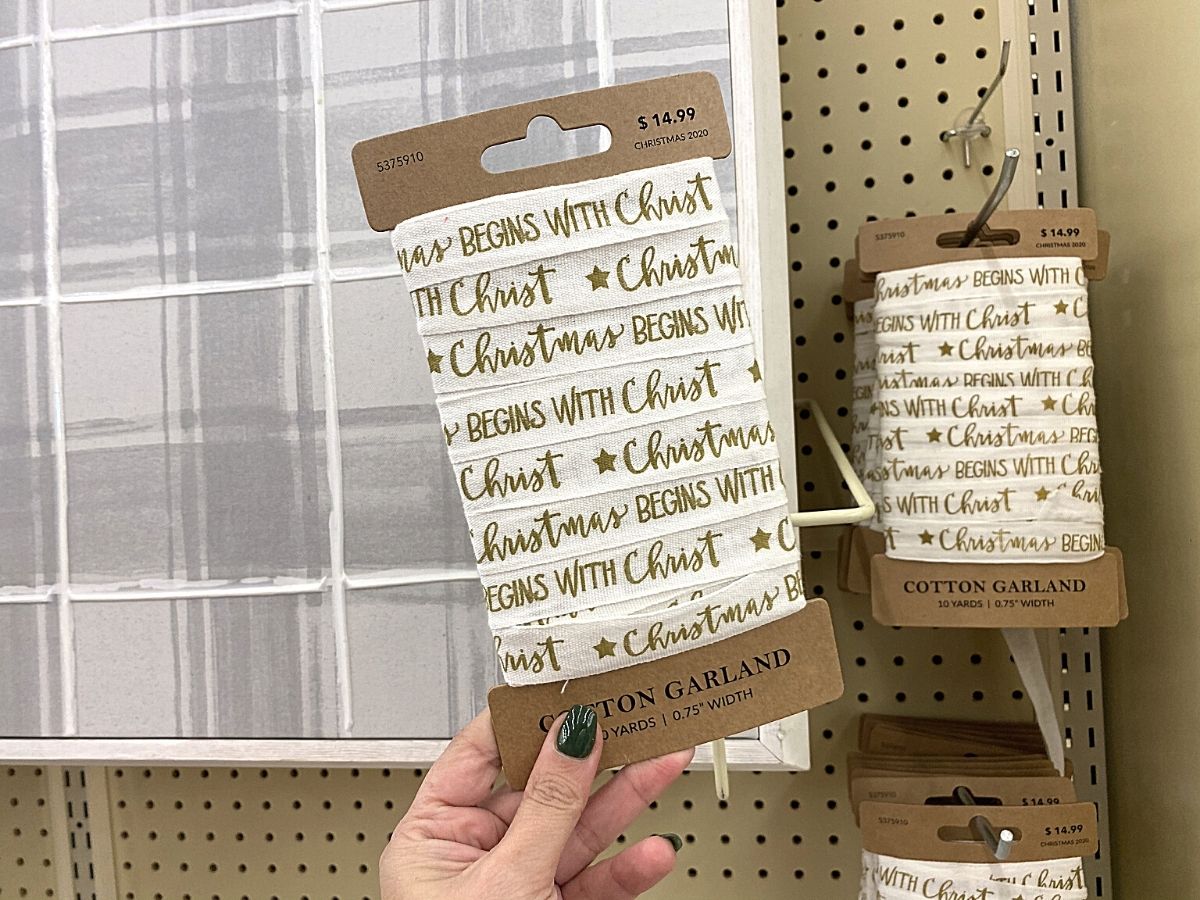 5375910
$ 14.99
CHRISTMAS 2020
mas BEGINS WITH Christ
TH Christ ★ Christm
★ Christmas BEGINS WIT
BEGINS WITH Christ ★
Christ ★ Christmas
Christmas BEGINS WITH C
BEGINS WITH Christ ★ C
Christ ★ Christmas BE
COTTON GARLAND
0 YARDS | 0.75" WIDTH
5375910
$ 14.99
CHRISTMAS 2020
Christmas BEGINS WITH C
EGINS WITH Christ ★ C
rist ★ Christmas BE
istmas BEGINS WITH Ch
NS WITH Christ ★ Chr
rist ★ Christmas BEG
stmas BEGINS WITH Chr
S WITH Christ ★ Chri
t ★ Christmas BEGIN
COTTON GARLAND
10 YARDS | 0.75" WIDTH
$ 14.99
5375910
$ 14.99
CHRISTMAS 2020
WITH Christ
Christ